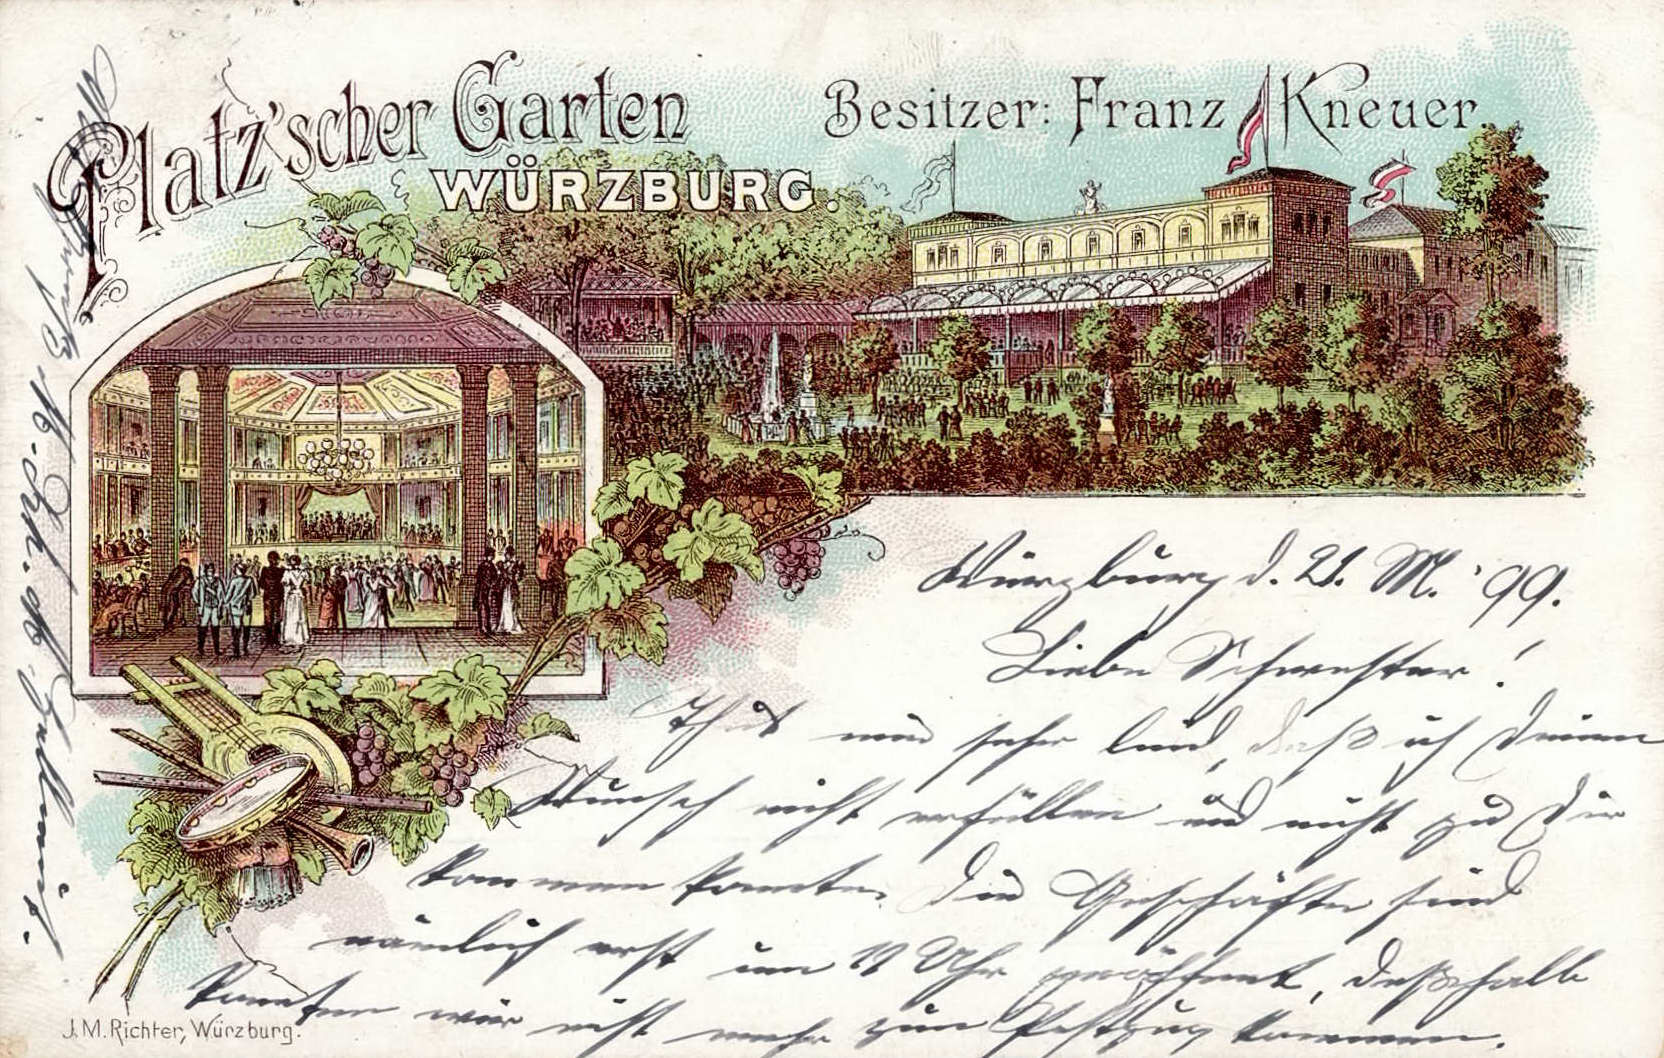 Platz'scher Garten
WÜRZBURG.
Besitzer: Franz Kneuer.
Würzburg d. 21. M. '99.
Liebe Schwester!
Thut mir sehr leid, daß ich Deinen
Wunsch nicht erfüllen und nicht zu Dir
kommen konnte. Die Geschäfte sind
nämlich erst um 12 Uhr geöffnet, deßhalb
konnten wir nicht mehr zum Postzug kommen.
J.M. Richter, Würzburg.